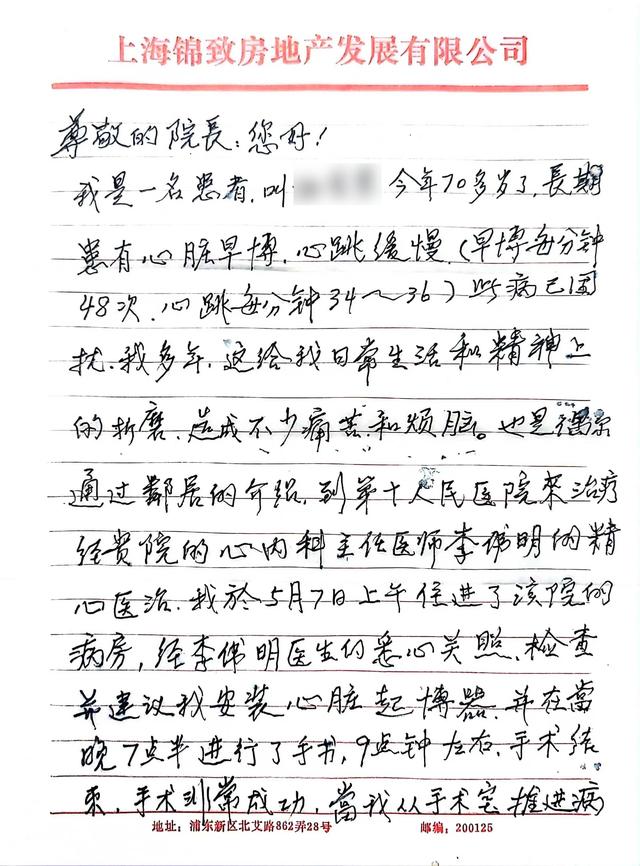 上海锦致房地产发展有限公司
尊敬的院長：您好！
我是一名患者，叫 今年70多岁了，長期
患有心脏早博，心跳缓慢，（早博每分钟
48次，心跳每分钟34～36）此病已困
扰，我多年，这给我日常生活和精神上
的折磨，造成不少痛苦和烦脑。也是偶尔
通过鄰居的介绍，到第十人民医院來治疗
经贵院的心内科主任医师李偉明的精
心医治，我於5月7日上午住進了该院的
病房，经李偉明医生的悉心关照，检查
并建议我安装心脏起博器，并在當
晚7点半進行了手术，9点钟左右，手术结
束，手术非常成功，當我从手术室推進病
地址：浦东新区北艾路862弄28号 邮编：200125